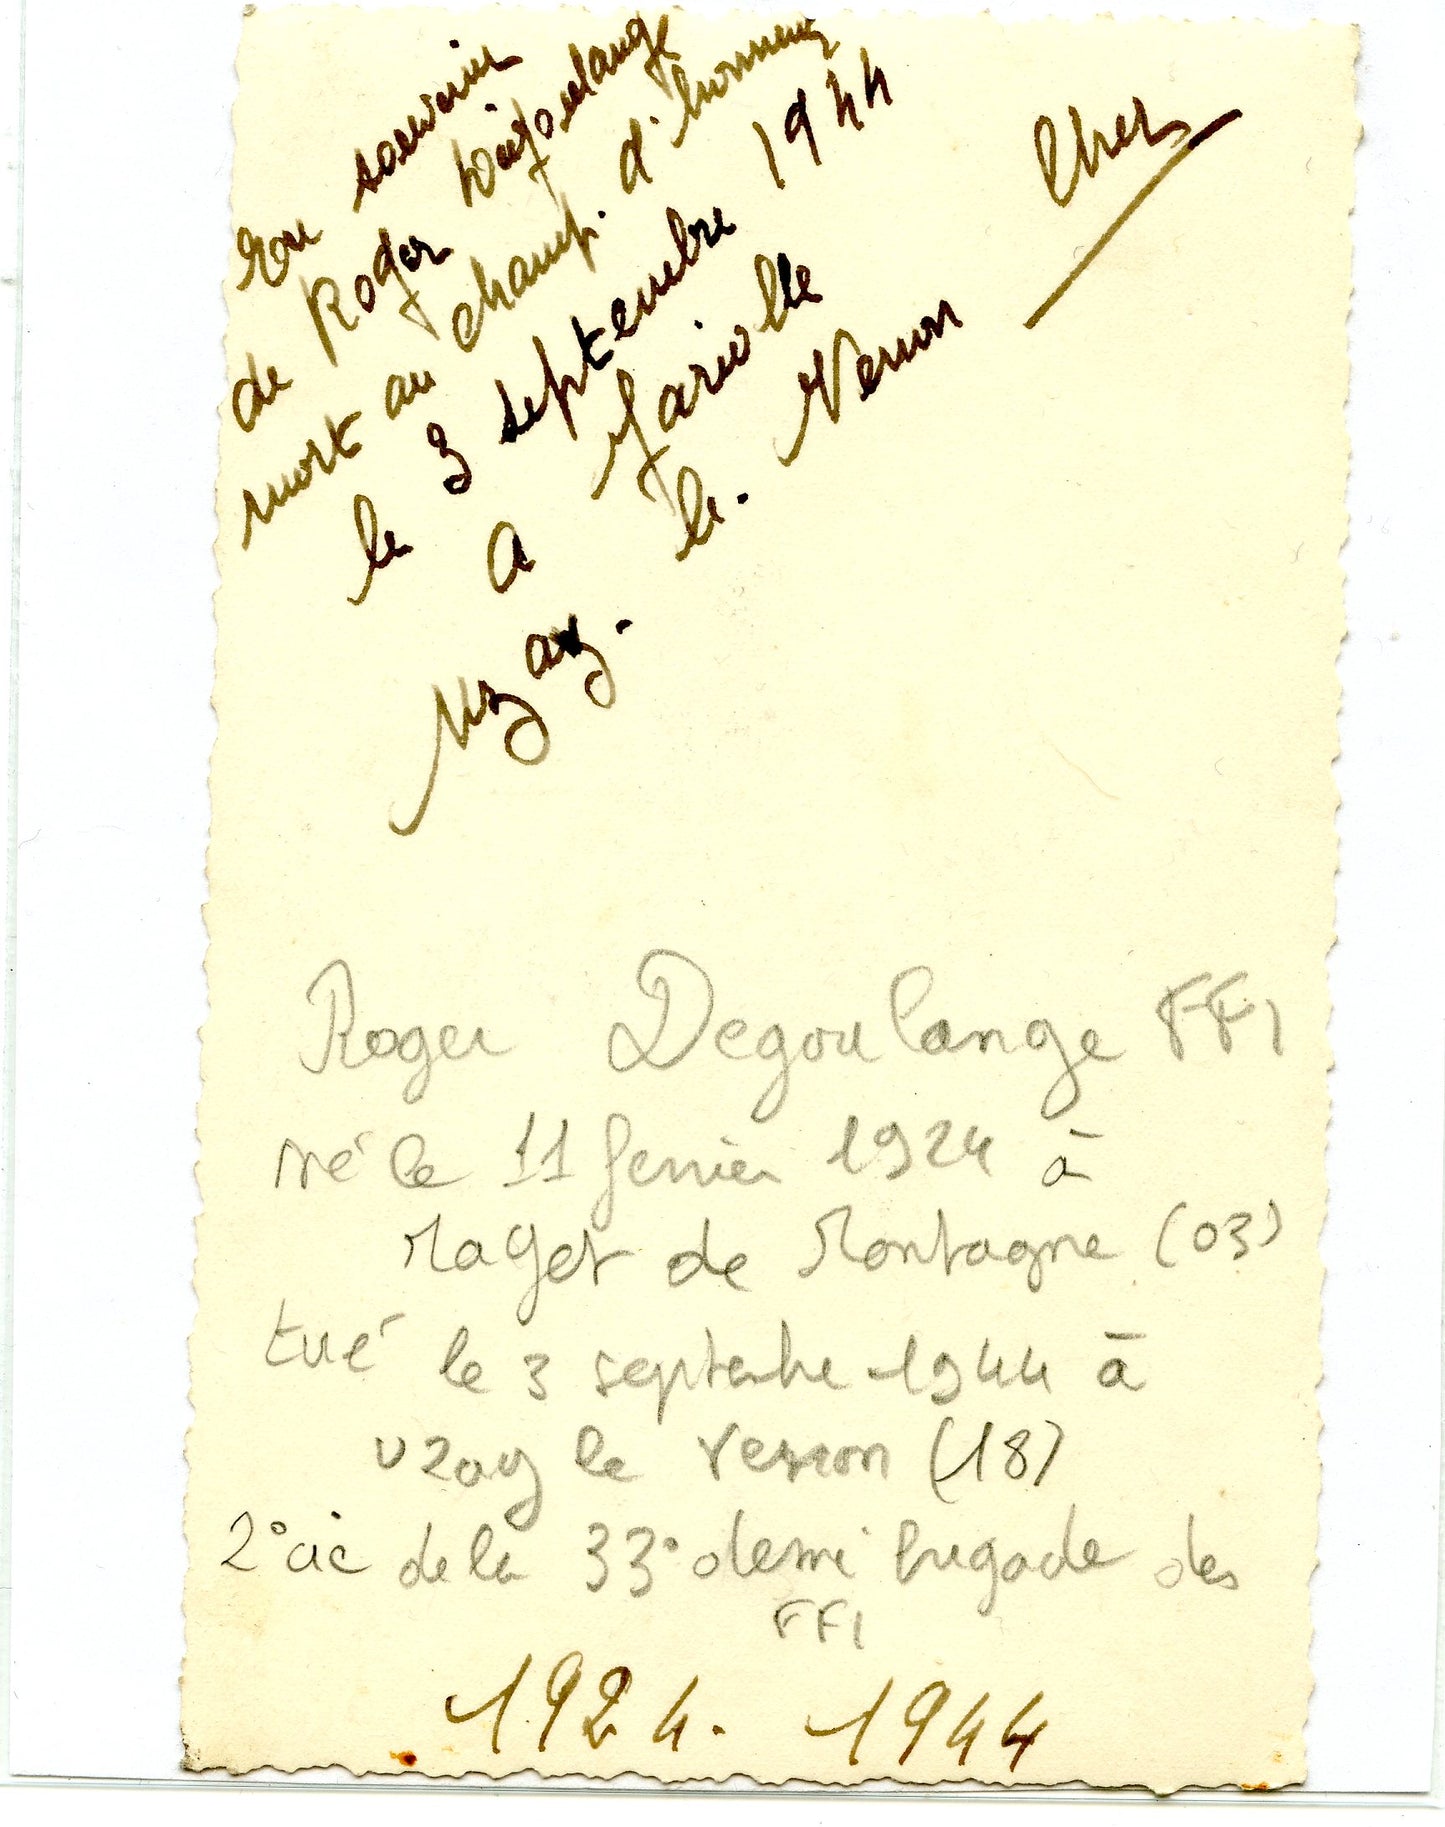 En souvenir
de Roger Dégoulange
mort au champ. d'honneur
le 3 septembre 1944
a Mariolle
Uzay. le. Venon
Cher
Roger Degoulange FFI
né le 11 fevrier 1924 à
Mayet de Montagne (03)
tué le 3 septembre 1944 à
Uzay le Venon (18)
2° cie de la 33° demi brigade des
FFI
1924. 1944